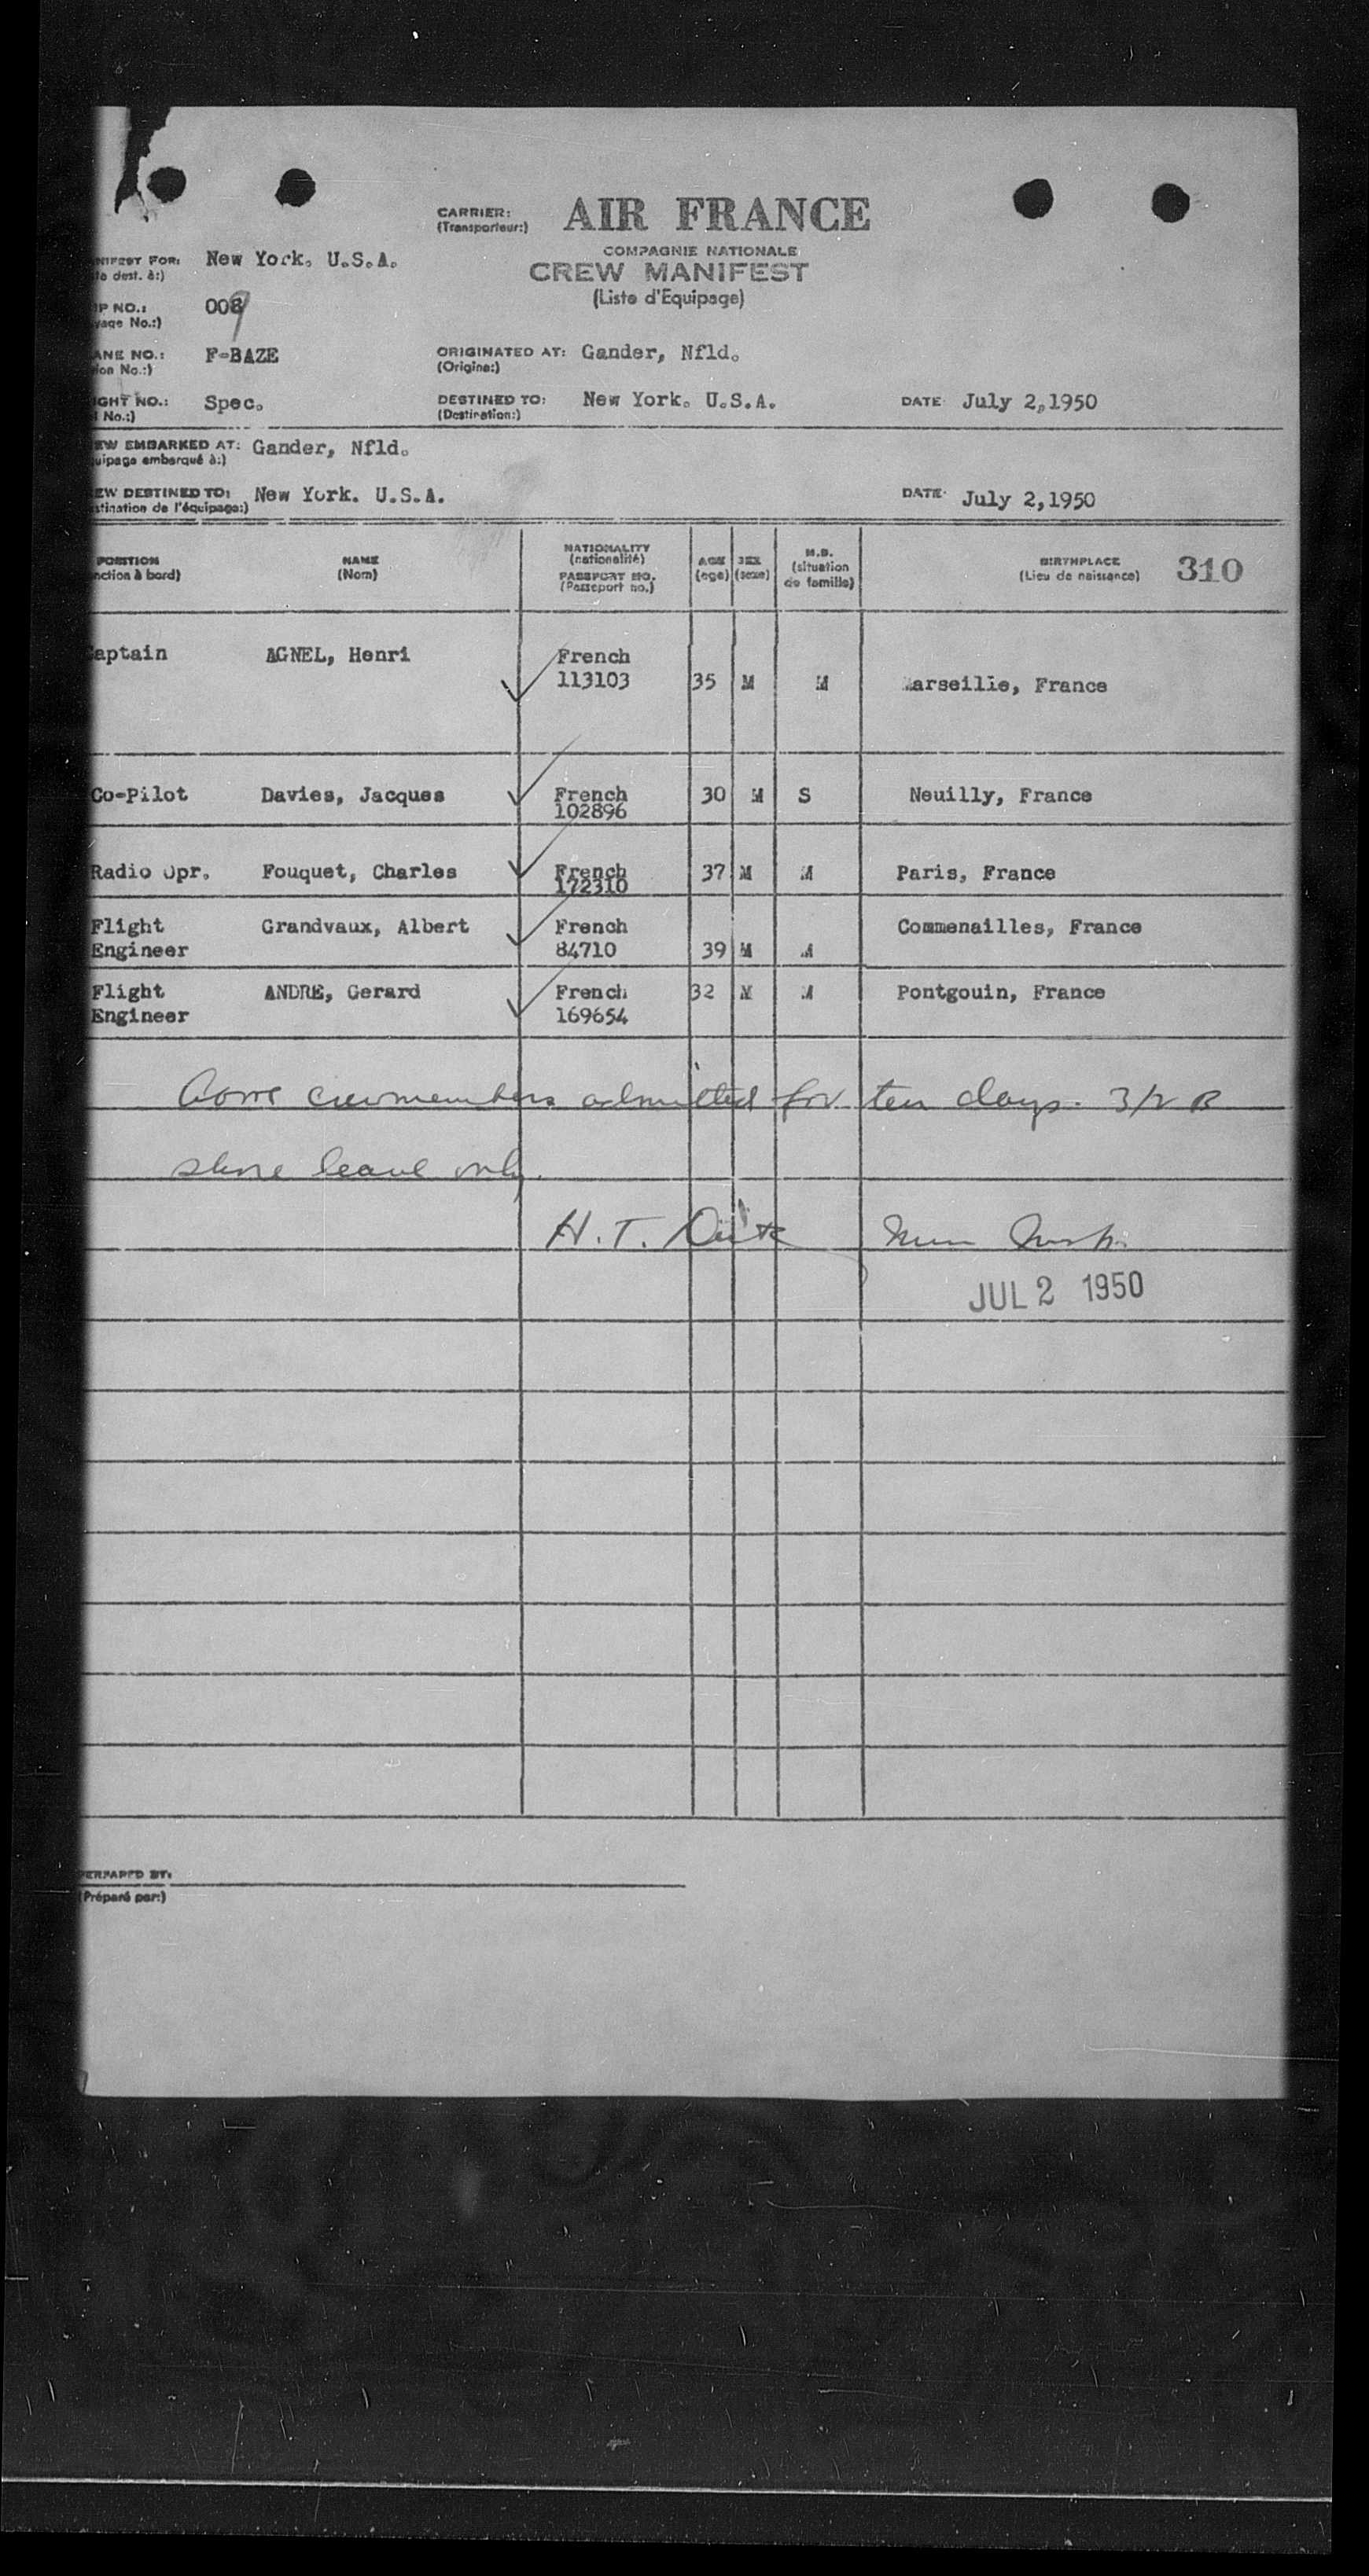 CARRIER: AIR FRANCE
(Transporteur:)
COMPAGNIE NATIONALE
CREW MANIFEST
(Liste d'Equipage)
NIFEST FOR: New York. U.S.A.
dest. à:)
P NO.: 009
yage No.:)
ANE NO.: F-BAZE
ion No.:)
ORIGINATED AT: Gander, Nfld.
(Origine:)
IGHT NO.: Spec.
l No.:)
DESTINED TO: New York. U.S.A.
(Destination:)
DATE July 2,1950
EW EMBARKED AT: Gander, Nfld.
quipage embarqué à:)
EW DESTINED TO: New York. U.S.A.
stination de l'équipage:)
DATE July 2,1950
POSITION NAME NATIONALITY AGE SEX M.S. BIRTHPLACE 310
nction à bord) (Nom) (nationalité) (age) (sexe) (situation de famille) (Lieu de naissance)
PASSPORT NO.
(Passeport no.)
Captain AGNEL, Henri French
113103 35 M M Marseille, France
Co-Pilot Davies, Jacques French 30 M S Neuilly, France
102896
Radio Opr. Fouquet, Charles French 37 M M Paris, France
172310
Flight Grandvaux, Albert French Commenailles, France
Engineer 84710 39 M M
Flight ANDRE, Gerard French 32 M M Pontgouin, France
Engineer 169654
Above crewmembers admitted for ten days. 3/2 B
shore leave only.
H. T. New York
JUL 2 1950
PERPARED BY:
(Préparé par:)